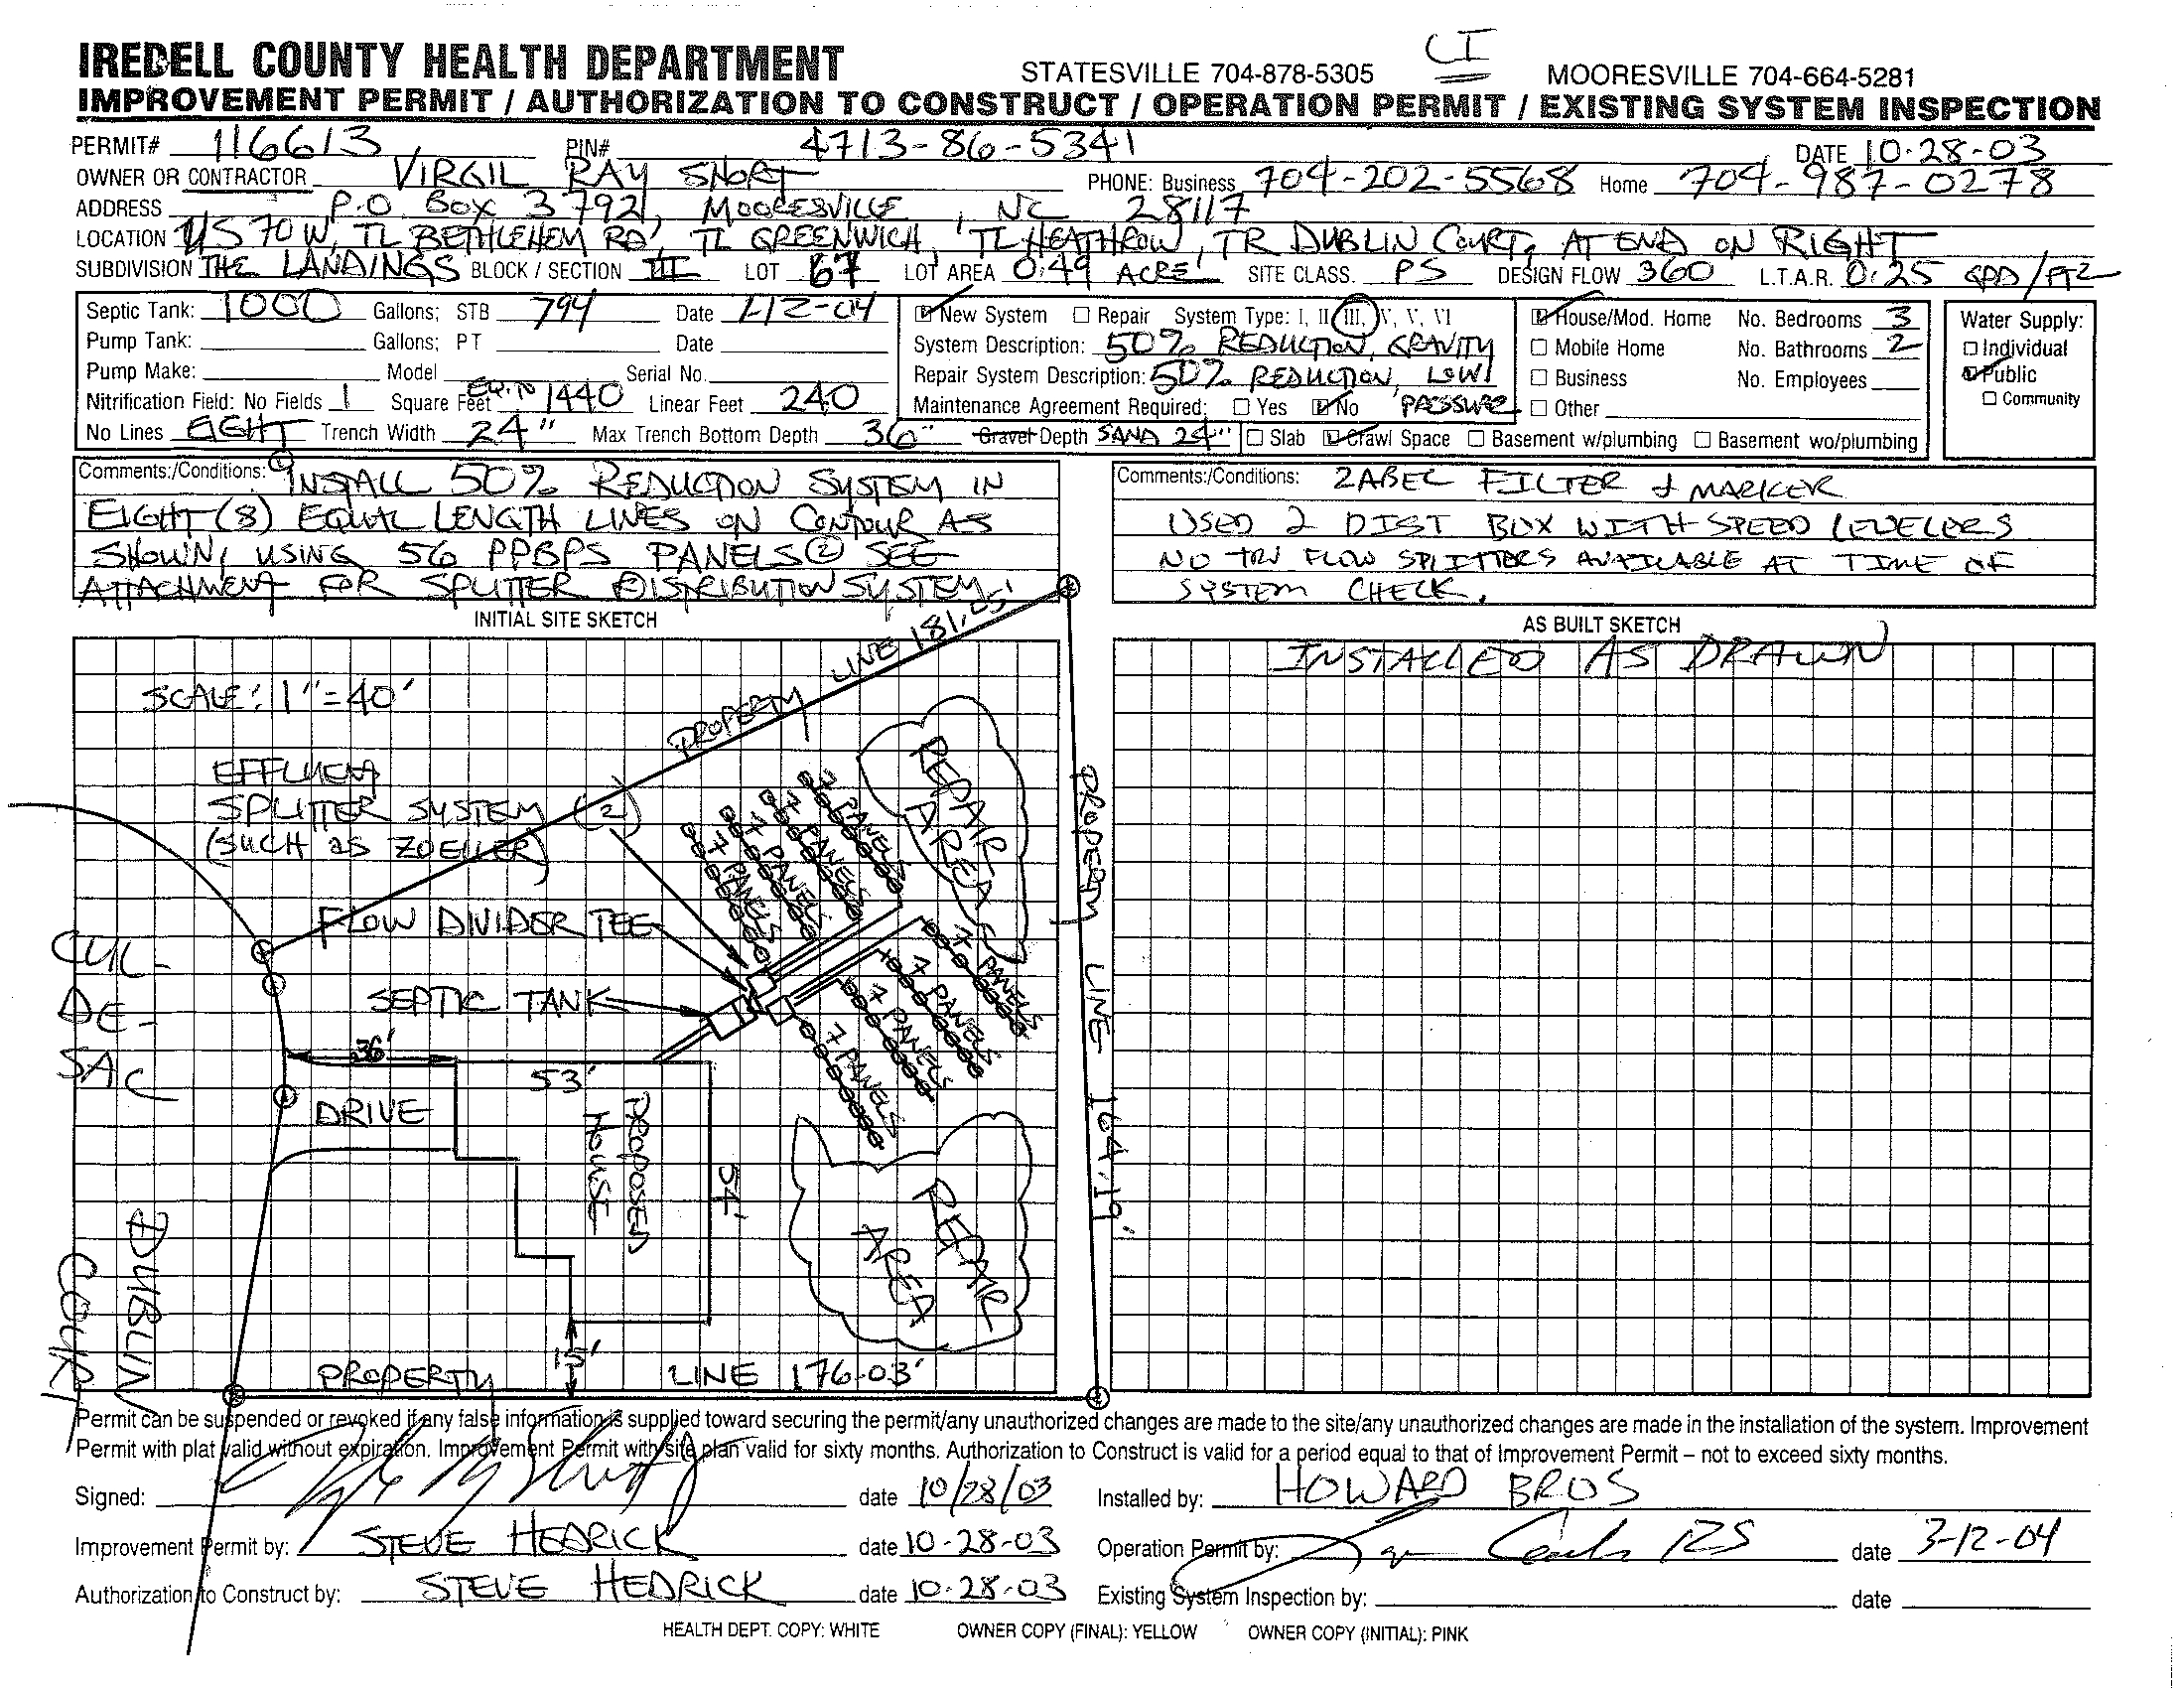 CI
IREDELL COUNTY HEALTH DEPARTMENT STATESVILLE 704-878-5305 MOORESVILLE 704-664-5281
IMPROVEMENT PERMIT / AUTHORIZATION TO CONSTRUCT / OPERATION PERMIT / EXISTING SYSTEM INSPECTION
PERMIT# 116613 PIN# 4713-86-5341 DATE 10-28-03
OWNER OR CONTRACTOR VIRGIL RAY SHORT PHONE: Business 704-202-5568 Home 704-987-0278
ADDRESS P.O. BOX 3792, MOORESVILLE, NC 28117
LOCATION US 70 W, TL BETHLEHEM RD, TL GREENWICH, TL HEATHROW, TR DUBLIN COURT, AT END ON RIGHT
SUBDIVISION THE LANDINGS BLOCK / SECTION III LOT 67 LOT AREA 0.49 ACRE SITE CLASS. PS DESIGN FLOW 360 L.T.A.R. 0.25 GPD/FT2
Septic Tank: 1000 Gallons; STB 794 Date 1-12-04
Pump Tank: Gallons; PT Date
Pump Make: Model Serial No.
Nitrification Field: No Fields 1 Square Feet EQ. TO 1440 Linear Feet 240
No Lines EIGHT Trench Width 24" Max Trench Bottom Depth 36" Gravel Depth SAND 24"
New System Repair System Type: I, II, III, IV, V, VI
System Description: 50% REDUCTION, GRAVITY
Repair System Description: 50% REDUCTION, LOW
Maintenance Agreement Required: Yes No PRESSURE
House/Mod. Home No. Bedrooms 3
Mobile Home No. Bathrooms 2
Business No. Employees
Other
Slab Crawl Space Basement w/plumbing Basement wo/plumbing
Water Supply:
Individual
Public
Community
Comments:/Conditions: ① INSTALL 50% REDUCTION SYSTEM IN
EIGHT (8) EQUAL LENGTH LINES ON CONTOUR AS
SHOWN, USING 56 PPBPS PANELS ② SEE
ATTACHMENT FOR SPLITTER DISTRIBUTION SYSTEM.
Comments:/Conditions: ZABEL FILTER & MARKER
USED 2 DIST BOX WITH SPEED LEVELERS
NO FLOW SPLITTERS AVAILABLE AT TIME OF
SYSTEM CHECK.
INITIAL SITE SKETCH
AS BUILT SKETCH
INSTALLED AS DRAWN
SCALE: 1"=40'
PROPERTY LINE 181.05'
EFFLUENT
SPLITTER SYSTEM (2)
(SUCH AS ZOELLER)
FLOW DIVIDER TEE
SEPTIC TANK
7 PANELS
7 PANELS
7 PANELS
7 PANELS
7 PANELS
7 PANELS
7 PANELS
7 PANELS
REPAIR
AREA
PROPERTY LINE 164.19'
CUL-
DE-
SAC
36'
53'
DRIVE
PROPOSED
HOUSE
54'
REPAIR
AREA
DUBLIN
COURT
15'
PROPERTY LINE 176.03'
Permit can be suspended or revoked if any false information is supplied toward securing the permit/any unauthorized changes are made to the site/any unauthorized changes are made in the installation of the system. Improvement
Permit with plat valid without expiration. Improvement Permit with site plan valid for sixty months. Authorization to Construct is valid for a period equal to that of Improvement Permit – not to exceed sixty months.
Signed: date 10/28/03 Installed by: HOWARD BROS
Improvement Permit by: STEVE HEDRICK date 10-28-03 Operation Permit by: RS date 3-12-04
Authorization to Construct by: STEVE HEDRICK date 10-28-03 Existing System Inspection by: date
HEALTH DEPT. COPY: WHITE OWNER COPY (FINAL): YELLOW OWNER COPY (INITIAL): PINK